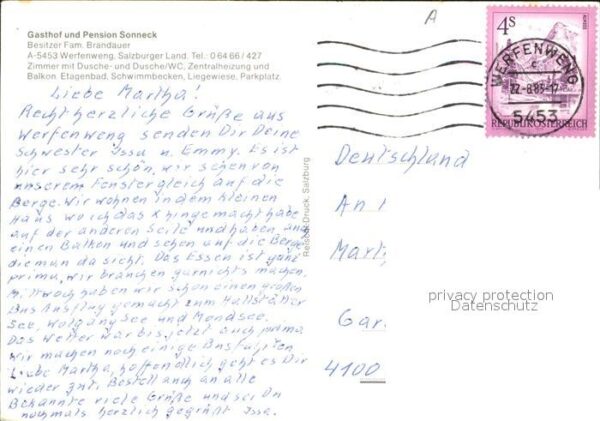 Gasthof und Pension Sonneck
Besitzer Fam. Brandauer
A-5453 Werfenweng, Salzburger Land. Tel.: 0 64 66 / 427
Zimmer mit Dusche- und Dusche/WC, Zentralheizung und
Balkon. Etagenbad, Schwimmbecken, Liegewiese, Parkplatz.
Liebe Martha!
Recht herzliche Grüße aus
Werfenweng senden Dir Deine
Schwester Issa u. Emmy. Es ist
hier sehr schön, wir sehen von
unserem Fenster gleich auf die
Berge. Wir wohnen in dem kleinen
Haus wo ich das X hingemacht habe
auf der anderen Seite und haben auch
einen Balkon und sehen auf die Berge
die man da sieht. Das Essen ist ganz
prima, wir brauchen garnichts machen.
Mittwoch haben wir schon einen großen
Bus Ausflug gemacht zum Hallstätter
See, Wolfgang See und Mondsee.
Das Wetter war bis jetzt auch prima
Wir machen noch einige Busfahrten
Liebe Martha, hoffendlich geht es Dir
wieder gut. Bestell auch an alle
Bekannte viele Grüße und sei Du
nochmals herzlich gegrüßt Issa.
Reisser-Druck, Salzburg
A
4S
WERFENWENG
c
22-8.83-17
5453
REPUBLIK ÖSTERREICH
Deutschland
An
Mart
Gar
4100
privacy protection
Datenschutz